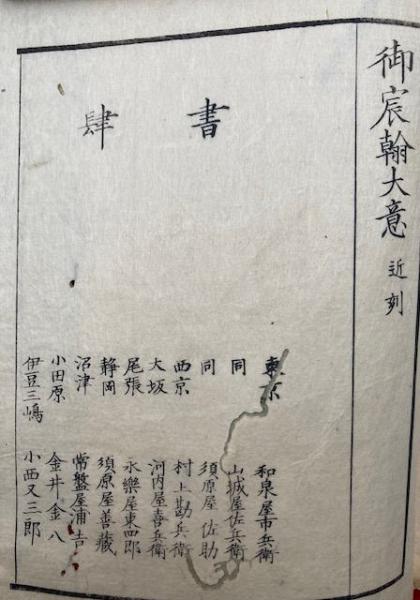 御宸翰大意 近刻
書肆
東京 和泉屋市兵衛
同 山城屋佐兵衛
同 須原屋佐助
西京 村上勘兵衛
大坂 河内屋喜兵衛
尾張 永樂屋東四郎
靜岡 須原屋善藏
沼津 常盤屋浦吉
小田原 金井金八
伊豆三嶋 小西又三郎